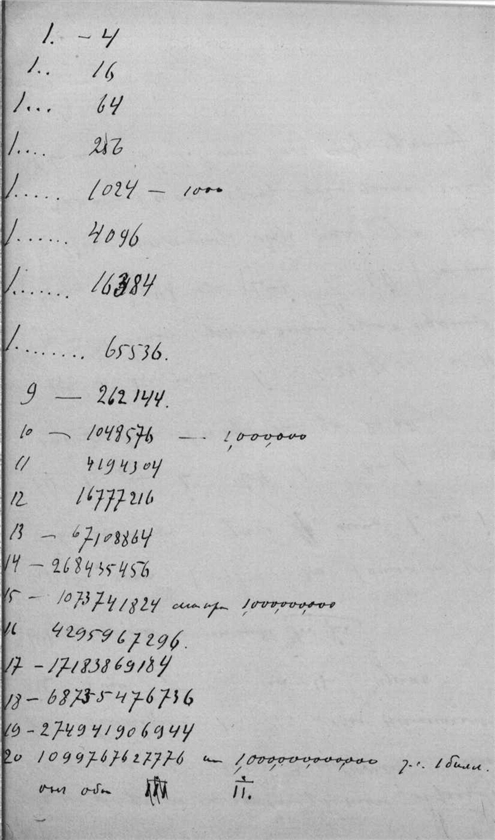 1. - 4
1.. 16
1... 64
1.... 256
1..... 1024 - 1000
1...... 4096
1....... 16384
1........ 65536.
9 — 262144.
10 — 1048576 — 1,000,000
11 4194304
12 16777216
13 - 67108864
14 - 268435456
15 - 1073741824 1,000,000,000
16 4295967296.
17 - 17183869184
18 - 68735476736
19 - 274941906944
20 1099767627776 1,000,000,000,000 т.е. 1 билл.
II.